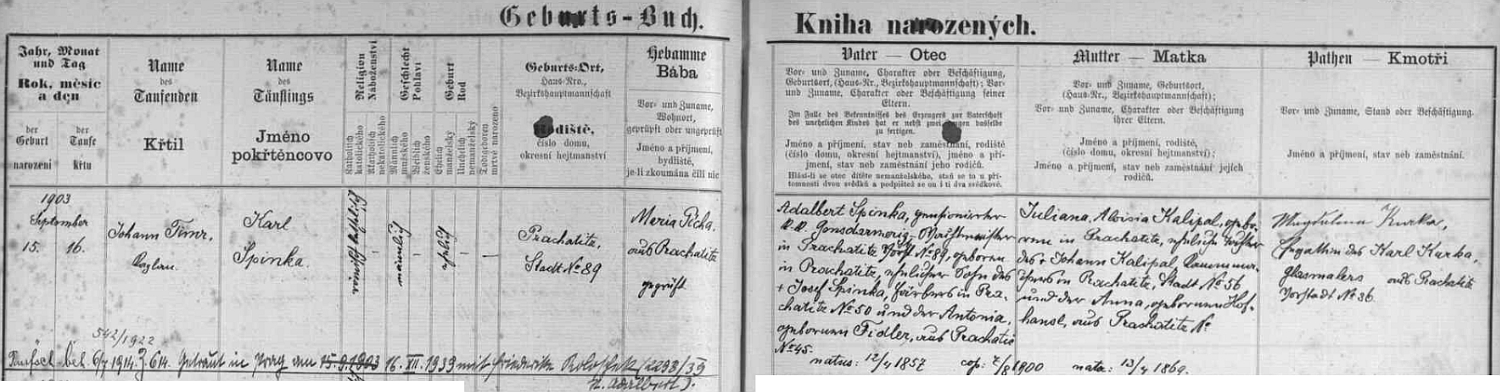 Geburts-Buch.
Jahr, Monat
und Tag
Rok, měsíc
a den
der
Geburt
narození
der
Taufe
křtu
Name
des
Taufenden
Křtil
Name
des
Täuflings
Jméno
pokřtěncovo
Religion
Náboženství
Katholisch
katolického
Akatholisch
nekatolického
Geschlecht
Pohlaví
Männlich
mužského
Weiblich
ženského
Geburt
Rod
Ehelich
manželský
Unehelich
nemanželský
Todtgeboren
mrtvě narozeno
Geburts-Ort,
Haus-Nro.,
Bezirkshauptmannschaft
Rodiště,
číslo domu,
okresní hejtmanství
Hebamme
Bába
Vor- und Zuname,
Wohnort,
geprüft oder ungeprüft
Jméno a příjmení,
bydliště,
je-li zkoumána čili nic
1903
September
15. 16.
Johann
Kaplan.
Karl
Spinka.
römisch katholisch
männlich
ehelich
Prachatitz,
Stadt No 89
Maria Picha.
aus Prachatitz
geprüft
542/1922
1914 Z 614. Getraut in Prag am 15.9.1903 16. XII. 1939 mit Friederike /2298/39
Kniha narozených.
Vater — Otec
Vor- und Zuname, Charakter oder Beschäftigung,
Geburtsort, (Haus-Nr., Bezirkshauptmannschaft); Vor-
und Zuname, Charakter oder Beschäftigung seiner
Eltern.
Im Falle des Bekenntnisses des Erzeugers zur Vaterschaft
des unehelichen Kindes hat er nebst zwei Zeugen dasselbe
zu fertigen.
Jméno a příjmení, stav neb zaměstnání, rodiště
(číslo domu, okresní hejtmanství), jméno a pří-
jmení, stav neb zaměstnání jeho rodičů.
Hlásí-li se otec dítěte nemanželského, staň se to u pří-
tomnosti dvou svědků a podpištež se on i ti dva svědkové.
Mutter — Matka
Vor- und Zuname, Geburtsort,
(Haus-Nr., Bezirkshauptmannschaft);
Vor- und Zuname, Charakter oder Beschäftigung
ihrer Eltern.
Jméno a příjmení, rodiště,
(číslo domu, okresní hejtmanství);
Jméno a příjmení, stav neb zaměstnání jejich
rodičů.
Pathen — Kmotři
Vor- und Zuname, Stand oder Beschäftigung.
Jméno a příjmení, stav neb zaměstnání.
Adalbert Spinka, pensionierter
k.k. Gendarmerie Wachtmeister
in Prachatitz Vorst. No 89, geboren
in Prachatitz, ehelicher Sohn des
+ Josef Spinka, Färbers in Pra-
chatitz No 50 und der Antonia,
geborenen Fidler, aus Prachatitz
No 45.
natus: 12/4 1857 cop: 7/8 1900
Juliana, Aloisia Kalipal, gebo-
ren in Prachatitz, eheliche Tochter
des + Johann Kalipal,
in Prachatitz, Stadt No 56
und der Anna, geborenen Hof-
hansl, aus Prachatitz No
nata: 13/4 1869.
Magdalena Kurka,
Gegattin des Karl Kurka,
Glasmalers aus Prachatitz
Vorstadt No 36